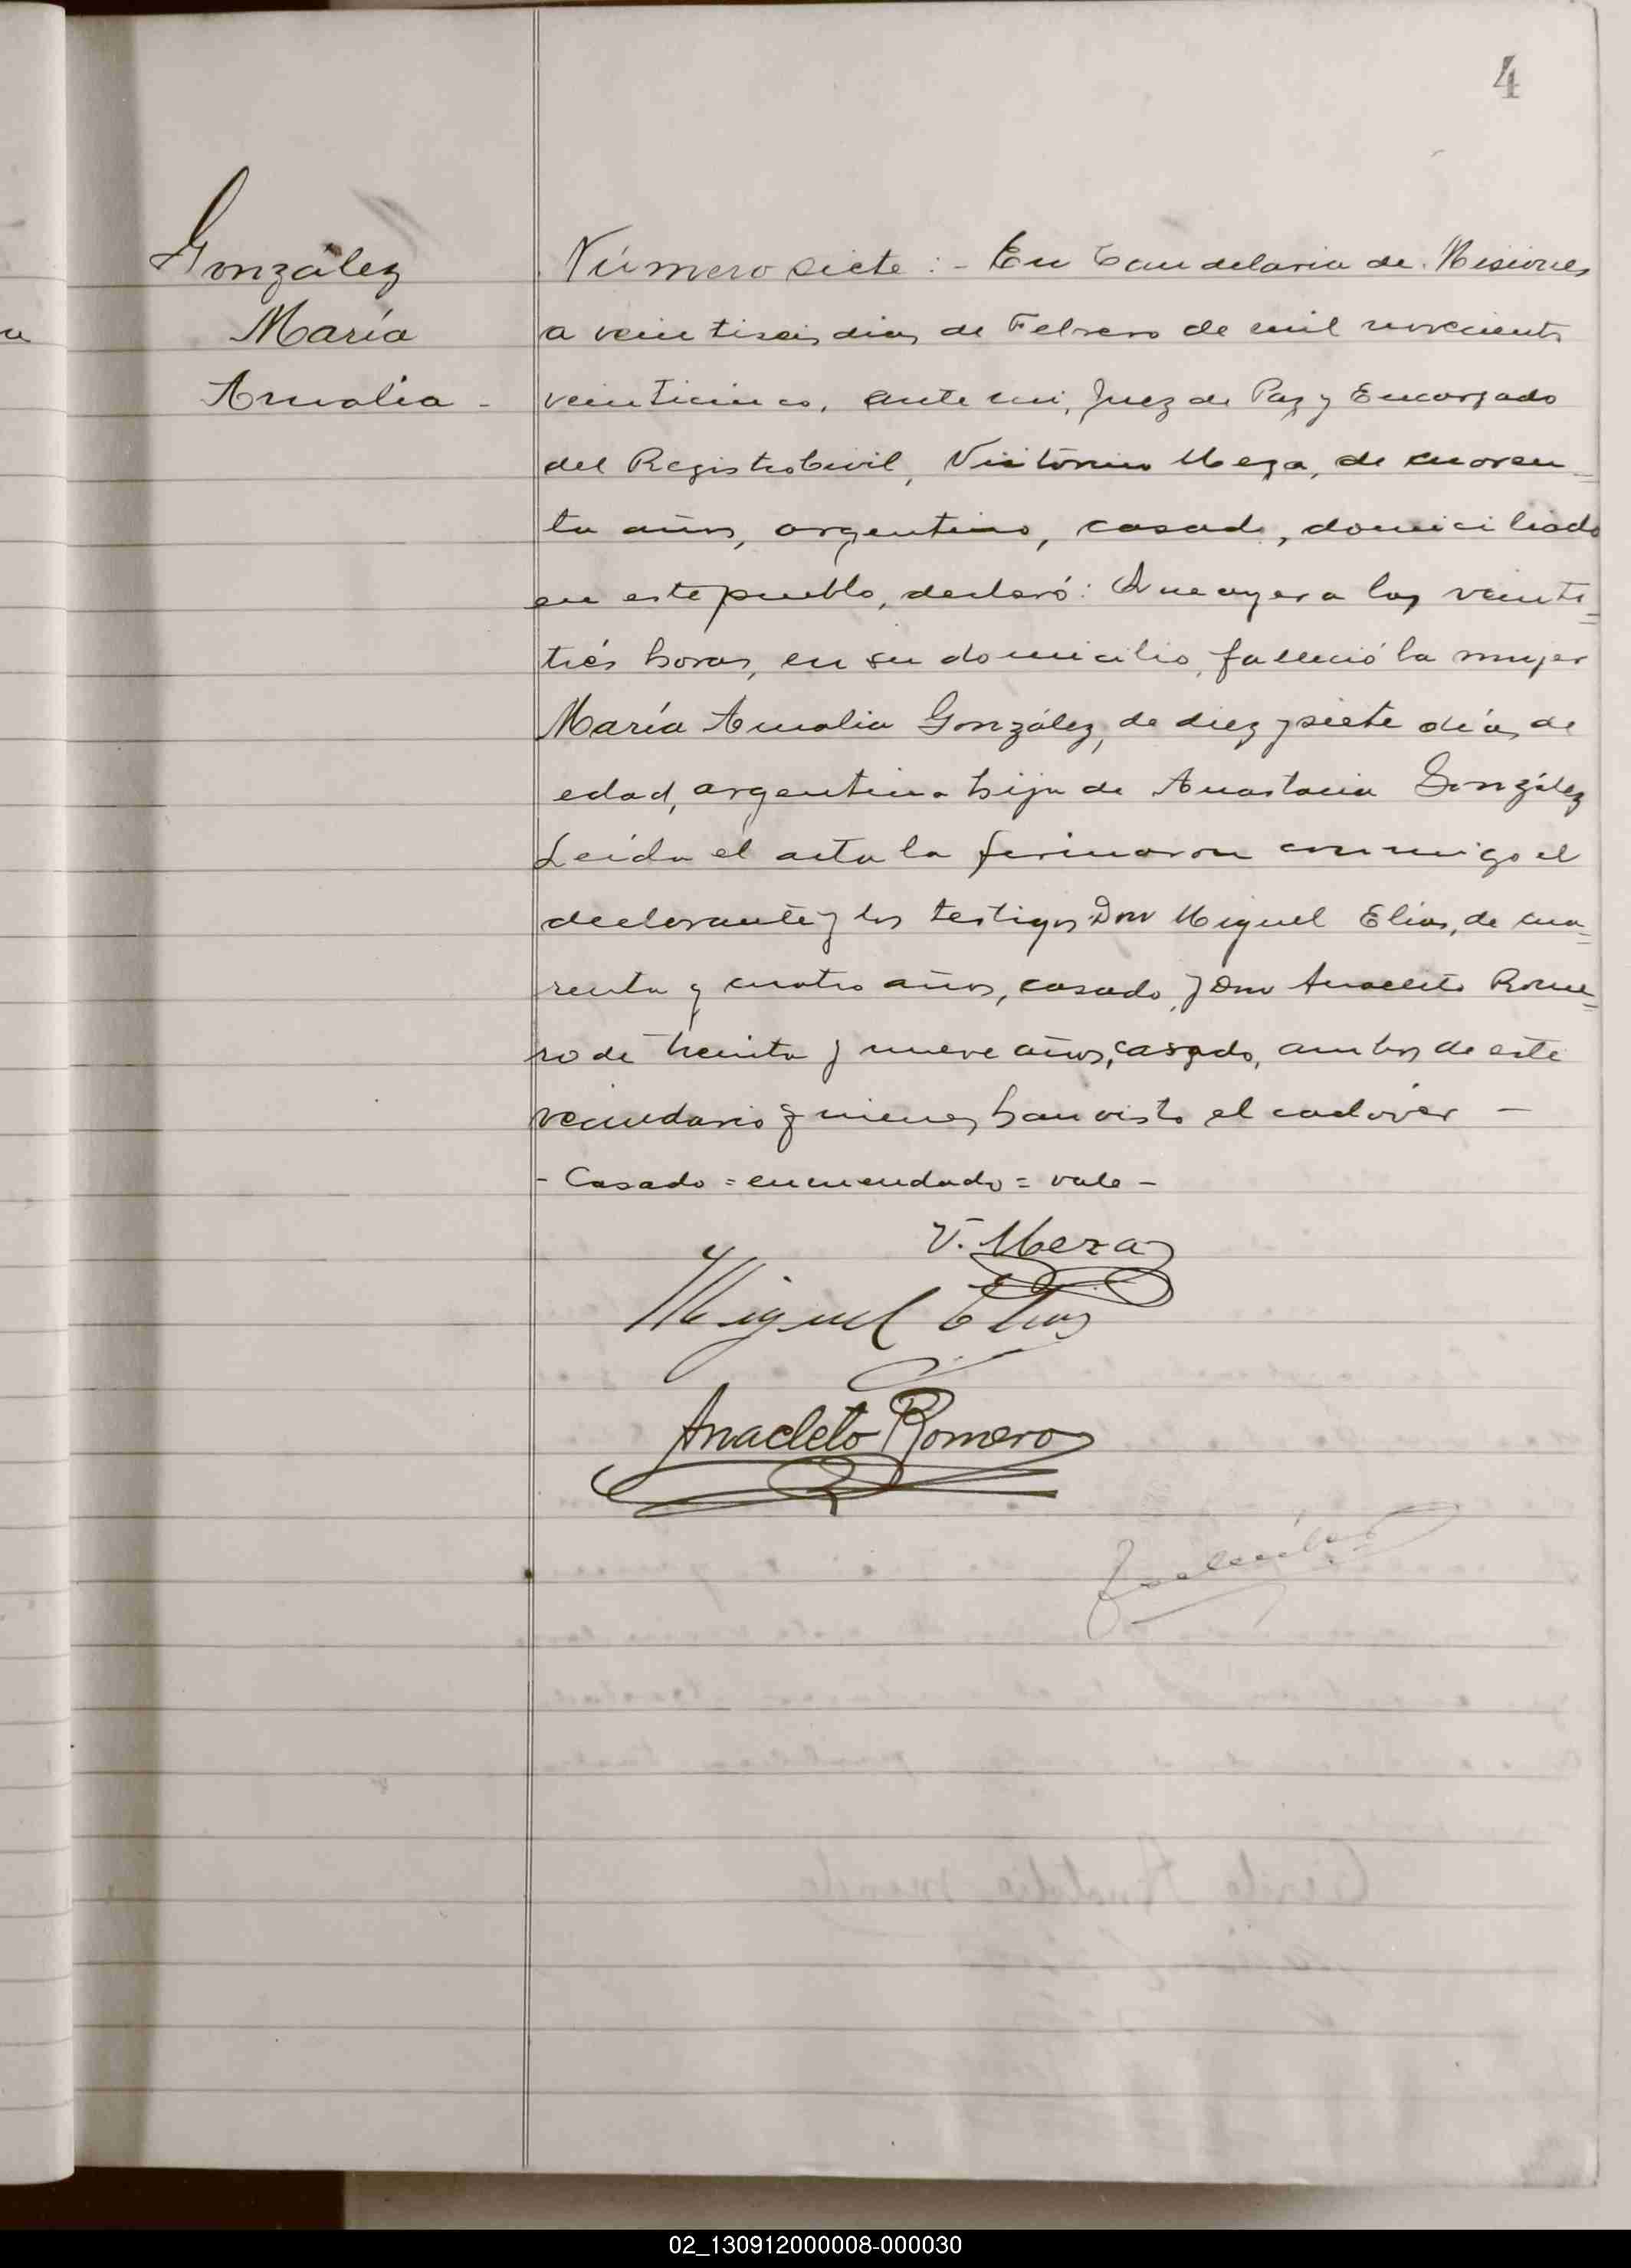 4
González
María
Amalia -
Número siete : - En Candelaria de Misiones
a veintiseis dias de Febrero de mil novecientos
veinticinco, ante mi, Juez de Paz y Encargado
del Registro Civil, Victorino Meza, de cuaren=
ta años, argentino, casado, domiciliado
en este pueblo, declaró: Que ayer a las veinti=
trés horas, en su domicilio, falleció la mujer
María Amalia González, de diez y siete días de
edad, argentina hija de Anastacia González
Leida el acta la firmaron conmigo el
declarante y los testigos Don Miguel Elias, de cua=
renta y cuatro años, casado, y Don Anacleto Rome=
ro de treinta y nueve años, casado, ambos de este
vecindario quienes han visto el cadáver -
- Casado = enmendado = vale -
V. Meza
Miguel Elias
Anacleto Romero
02_130912000008-000030